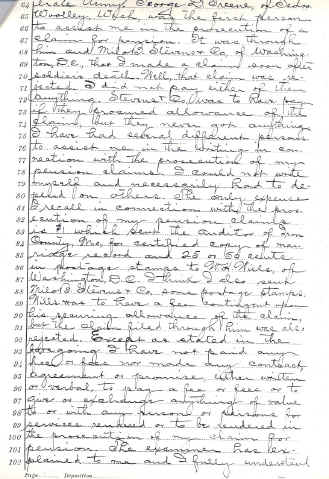 64 George L. Greene, of Sedro
65 Woolley, Wash. was the first person
66 to assist me in the prosecution of a
67 claim for pension. It was through
68 him and Milo B. Stevens & Co. of Washing-
69 ton, D.C., that I made a claim soon after
70 soldiers death. Well, that claim was re-
71 jected. I did not pay either of them
72 anything. Stevens & Co. was to have pay
73 if they procured allowance of the
74 claim but they never got anything
75 I have had several different persons
76 to assist me in the writing in con-
77 nection with the prosecution of my
78 pension claims. I could not write
79 myself and necessarily had to de-
80 pend on others. The only expense
81 I recall in connection with the pros-
82 ecution of my pension claims
83 is $1 which sent the auditor of Iron
84 County, Mo, for certified copy of mar-
85 riage record and 25 or 50 cents
86 in postage stamps to Wills, of
87 Washington D.C. I think I also sent
88 Milo B. Stevens & Co. some postage stamps.
89 Wills was to have a fee contingent upon
90 his securing allowance of the claim
91 but the claim filed through him was also
92 rejected. Except as stated in the
93 foregoing I have not paid any
94 fee or fees nor made any contract,
95 agreement or promise, either written
96 or verbal, to pay a fee or fees or to
97 give or exchange anything of value
98 to or with any person or persons for
99 services rendered or to be rendered in
100 the prosecution of my claim for
101 pension. The examiner has ex-
102 plained to me and I fully understand
Page Deposition